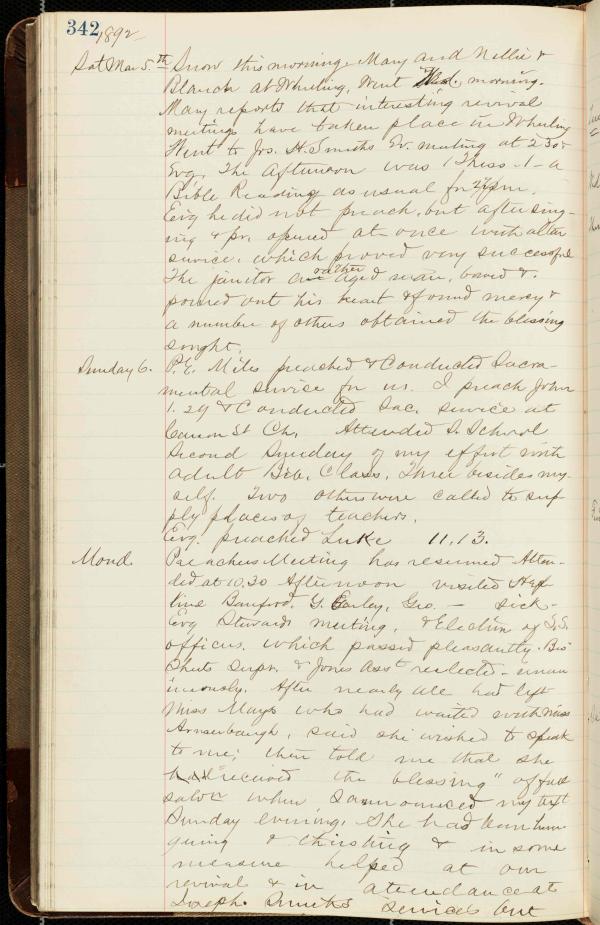 342 1892
Sat Mar 5.th Snow this morning. Mary and Nellie &
Blanch at Wheeling, Went Wed. morning.
Mary reports that interesting revival
meetings have taken place in Wheeling
Went to Jos. H. Smiths Ev. meeting at 2 30 &
Evg. The afternoon was 1 Thess. 1 - a
Bible Reading as usual for
Evg he did not preach, but after sing-
ing & pr. opened at once with altar
service, which proved very successful
The janitor a rather aged man, bowed &
poured out his heart & found mercy &
a number of others obtained the blessing
sought.
Sunday 6. P.E. Miles preached & Conducted Sacra-
mental service for us. I preach John
1. 29 & Conducted Sac. service at
Canon St Ch. Attended S. School
Second Sunday of my effort with
adult Bib. Class. Three besides my-
self. Two others were called to sup
ply places of teachers.
Evg. preached Luke 11, 13.
Mond. Preachers Meeting has resumed Atten-
ded at 10.30 Afternoon visited
Bamford, G. Geo. - sick-
Evg Stewards meeting, & Election of S.S.
officers, which passed pleasantly. Bro
Shuts Supr. & Jones Asst reelected - unan
imously. After nearly all had left
Miss Mays who had waited with Miss
Arnsenbaugh, said she wished to speak
to me; then told me that she
had "received the blessing" of full
salvn when I announced my text
Sunday evening. She had been hun-
gering & thirsting & in some
measure helped at our
revival & in attendance at
Joseph Smiths services but